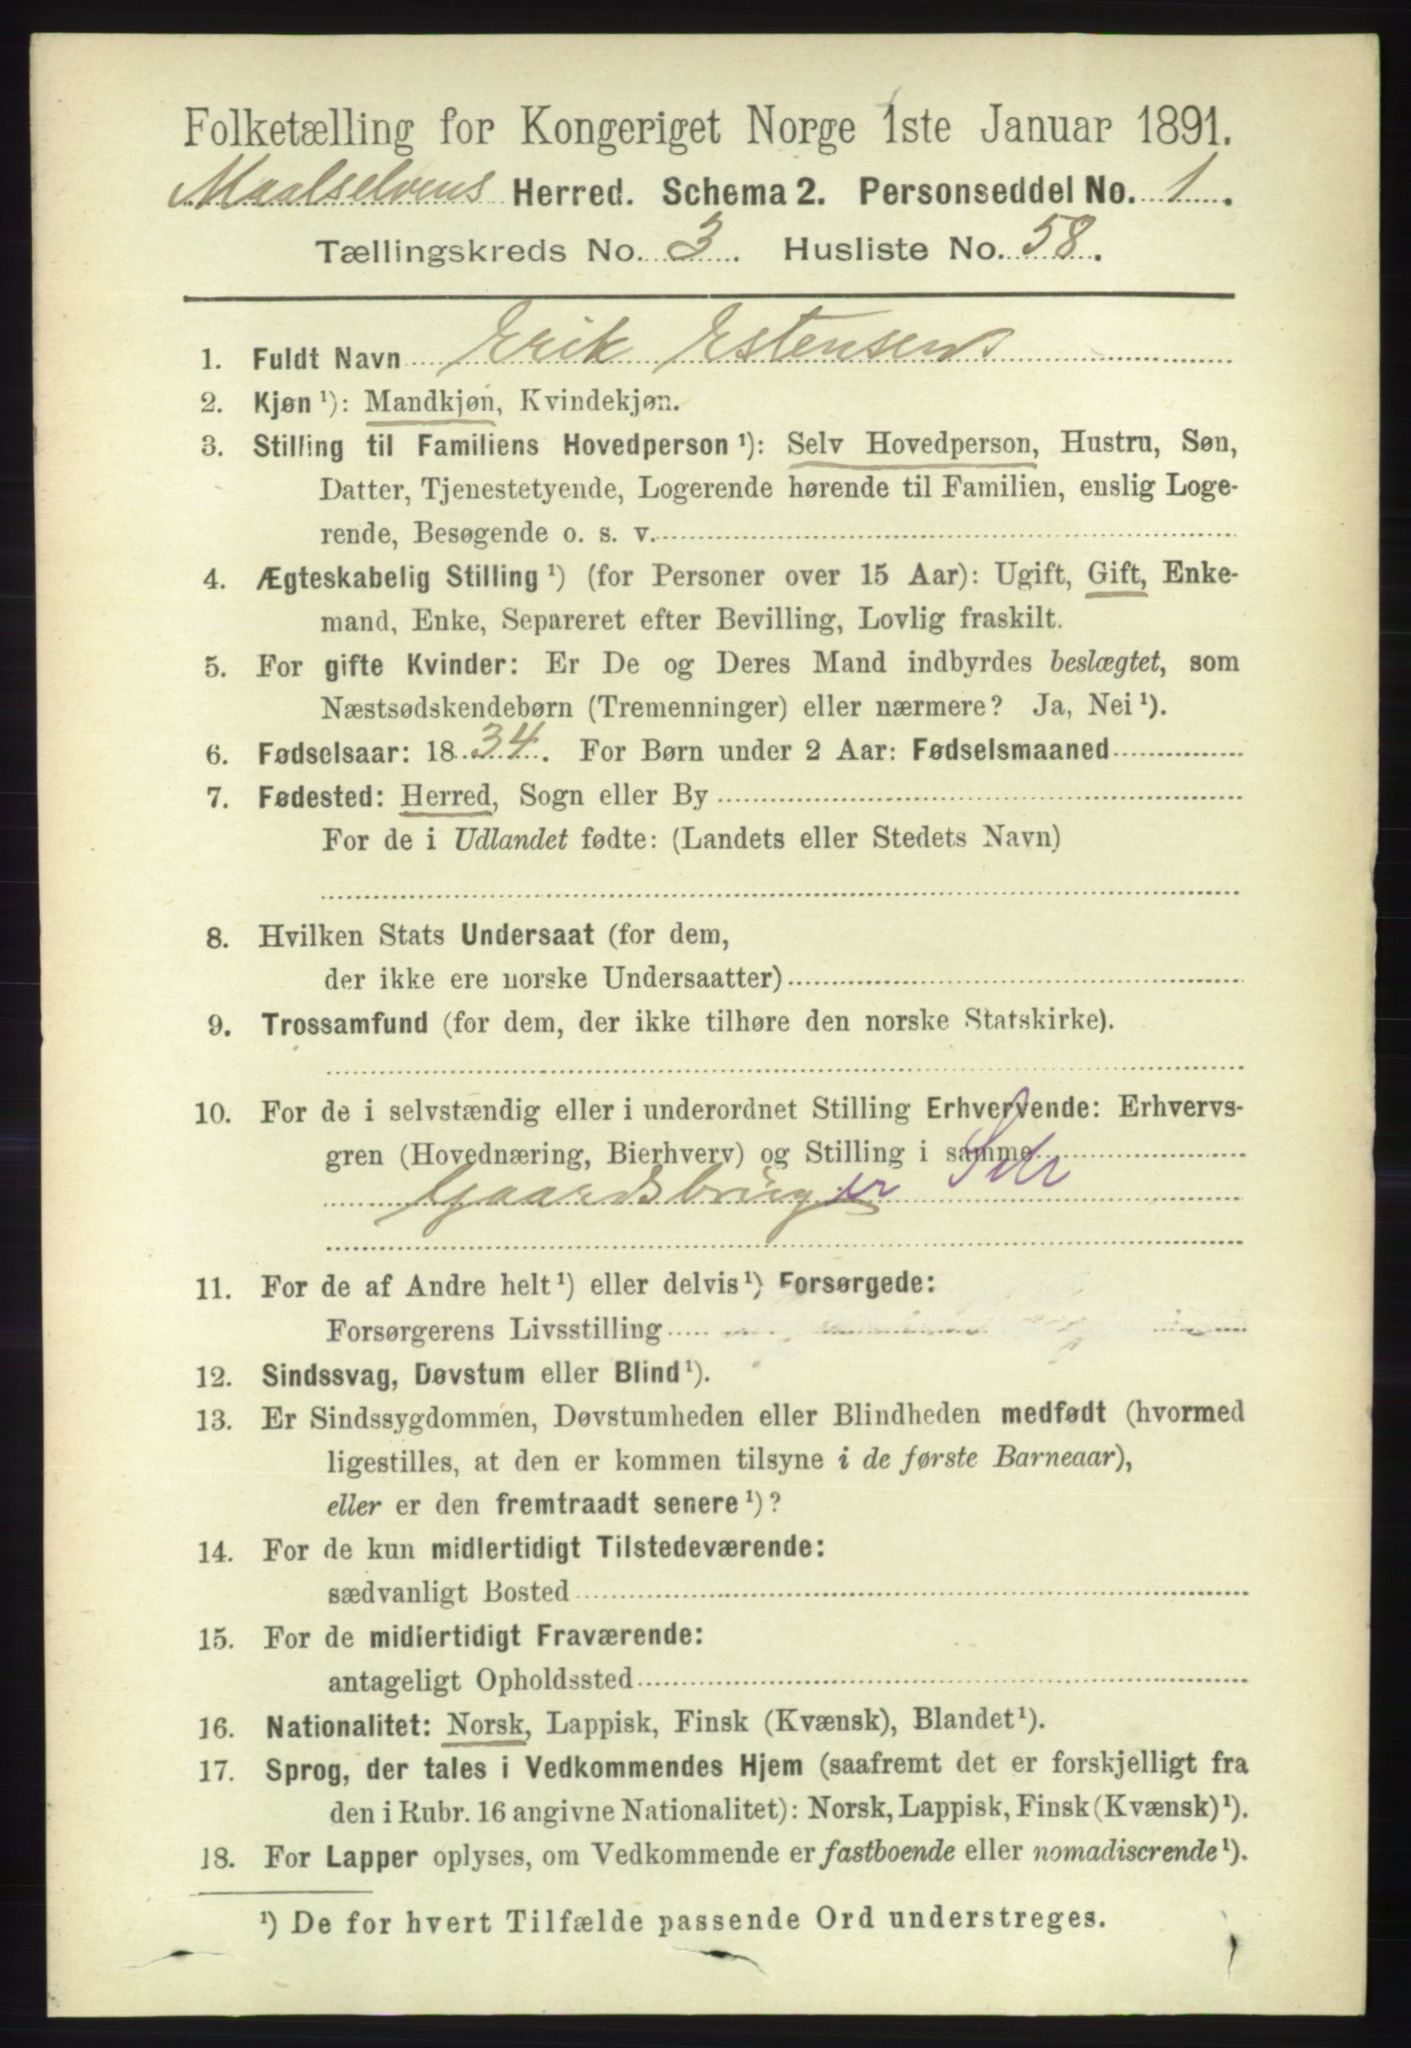 Folketælling for Kongeriget Norge 1ste Januar 1891.
Maalselvens Herred. Schema 2. Personseddel No. 1.
Tællingskreds No. 3. Husliste No. 58.
1. Fuldt Navn Erik Estensen
2. Kjøn ¹): Mandkjøn, Kvindekjøn.
3. Stilling til Familiens Hovedperson ¹): Selv Hovedperson, Hustru, Søn,
Datter, Tjenestetyende, Logerende hørende til Familien, enslig Loge-
rende, Besøgende o. s. v.
4. Ægteskabelig Stilling ¹) (for Personer over 15 Aar): Ugift, Gift, Enke-
mand, Enke, Separeret efter Bevilling, Lovlig fraskilt.
5. For gifte Kvinder: Er De og Deres Mand indbyrdes beslægtet, som
Næstsødskendebørn (Tremenninger) eller nærmere? Ja, Nei ¹).
6. Fødselsaar: 1834. For Børn under 2 Aar: Fødselsmaaned
7. Fødested: Herred, Sogn eller By
For de i Udlandet fødte: (Landets eller Stedets Navn)
8. Hvilken Stats Undersaat (for dem,
der ikke ere norske Undersaatter)
9. Trossamfund (for dem, der ikke tilhøre den norske Statskirke).
10. For de i selvstændig eller i underordnet Stilling Erhvervende: Erhvervs-
gren (Hovednæring, Bierhverv) og Stilling i samme
Gaardsbruger Selv
11. For de af Andre helt ¹) eller delvis ¹) Forsørgede:
Forsørgerens Livsstilling
12. Sindssvag, Døvstum eller Blind ¹).
13. Er Sindssygdommen, Døvstumheden eller Blindheden medfødt (hvormed
ligestilles, at den er kommen tilsyne i de første Barneaar),
eller er den fremtraadt senere ¹)?
14. For de kun midlertidigt Tilstedeværende:
sædvanligt Bosted
15. For de midlertidigt Fraværende:
antageligt Opholdssted
16. Nationalitet: Norsk, Lappisk, Finsk (Kvænsk), Blandet ¹).
17. Sprog, der tales i Vedkommendes Hjem (saafremt det er forskjelligt fra
den i Rubr. 16 angivne Nationalitet): Norsk, Lappisk, Finsk (Kvænsk) ¹).
18. For Lapper oplyses, om Vedkommende er fastboende eller nomadiserende ¹).
¹) De for hvert Tilfælde passende Ord understreges.